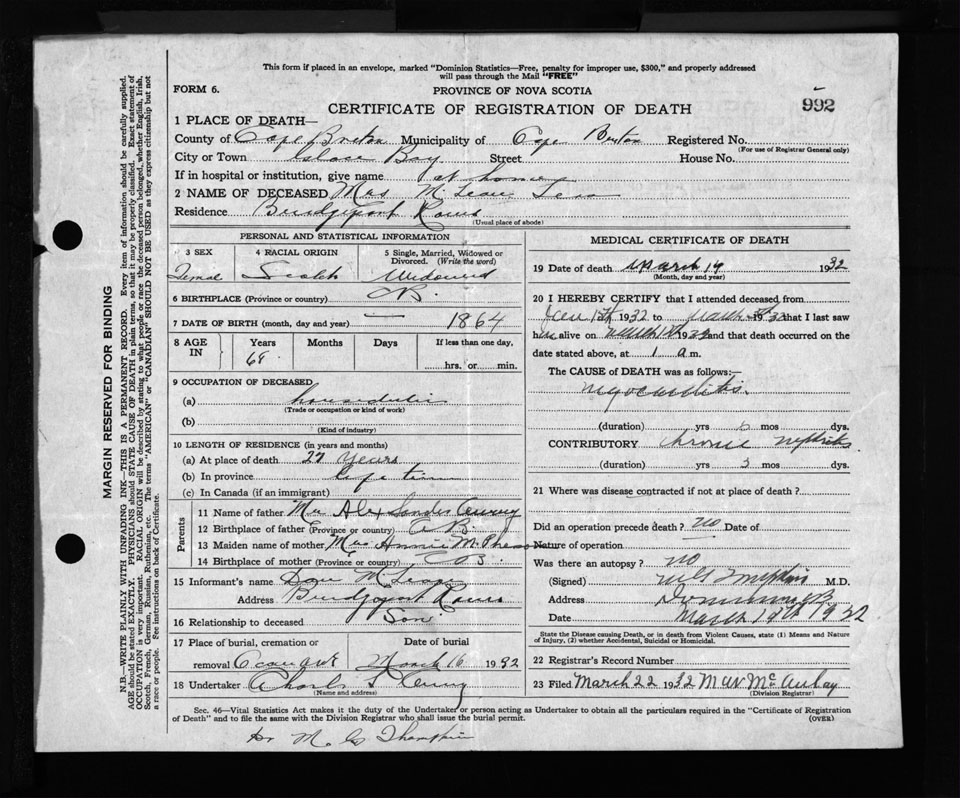 This form if placed in an envelope, marked "Dominion Statistics—Free, penalty for improper use, $300," and properly addressed
will pass through the Mail "FREE"
FORM 6.
PROVINCE OF NOVA SCOTIA
992
CERTIFICATE OF REGISTRATION OF DEATH
1 PLACE OF DEATH—
County of Cape Breton Municipality of Cape Breton Registered No.
(For use of Registrar General only)
City or Town Glace Bay Street House No.
If in hospital or institution, give name at home
2 NAME OF DECEASED Mrs M. Lean
Residence Bridgeport Rows
(Usual place of abode)
PERSONAL AND STATISTICAL INFORMATION
3 SEX 4 RACIAL ORIGIN 5 Single, Married, Widowed or
Divorced. (Write the word)
Femal Scotch Widowed
6 BIRTHPLACE (Province or country) CB.
7 DATE OF BIRTH (month, day and year) — 1864
8 AGE IN Years Months Days If less than one day,
68 hrs. or min.
9 OCCUPATION OF DECEASED
(a)
(Trade or occupation or kind of work)
(b)
(Kind of industry)
10 LENGTH OF RESIDENCE (in years and months)
(a) At place of death 27 Years
(b) In province Life time
(c) In Canada (if an immigrant)
Parents
11 Name of father Mr Alexander Curry
12 Birthplace of father (Province or country) C B.
13 Maiden name of mother Mrs Annie McPherson
14 Birthplace of mother (Province or country) C B
15 Informant's name Dan McLean
Address Bridgeport Rows
16 Relationship to deceased Son
17 Place of burial, cremation or Date of burial
removal March 16 1932
18 Undertaker Charles Curry
(Name and address)
MEDICAL CERTIFICATE OF DEATH
19 Date of death March 14 1932
(Month, day and year)
20 I HEREBY CERTIFY that I attended deceased from
Jan 1932 to March 1932 that I last saw
her alive on March 1932 and that death occurred on the
date stated above, at 1 a.m.
The CAUSE of DEATH was as follows:—
Myocarditis.
(duration) yrs mos dys.
CONTRIBUTORY Chronic Nephritis
(duration) yrs 3 mos dys.
21 Where was disease contracted if not at place of death?
Did an operation precede death? no Date of
Nature of operation
Was there an autopsy? no
(Signed) M.D.
Address Dominion CB
Date March 19 1932
State the Disease causing Death, or in death from Violent Causes, state (1) Means and Nature
of Injury, (2) whether Accidental, Suicidal or Homicidal.
22 Registrar's Record Number
23 Filed March 22 1932 McAulay
(Division Registrar)
Sec. 46—Vital Statistics Act makes it the duty of the Undertaker or person acting as Undertaker to obtain all the particulars required in the "Certificate of Registration
of Death" and to file the same with the Division Registrar who shall issue the burial permit.
(OVER)
Dr M. G. Thompkin
MARGIN RESERVED FOR BINDING
N.B.—WRITE PLAINLY WITH UNFADING INK—THIS IS A PERMANENT RECORD. Every item of information should be carefully supplied.
AGE should be stated EXACTLY. PHYSICIANS should STATE CAUSE OF DEATH in plain terms, so that it may be properly classified. Exact statement of
OCCUPATION is very important. RACIAL ORIGIN will be described by stating to what people or race the deceased person belonged, whether English, Irish,
Scotch, French, German, Russian, Ruthenian, etc. The terms "AMERICAN" or "CANADIAN" SHOULD NOT BE USED as they express citizenship but not
a race or people. See instructions on back of Certificate.